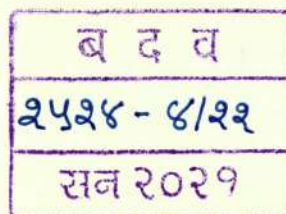 ब द व
२५२४ - ४/२२
सन २०२१